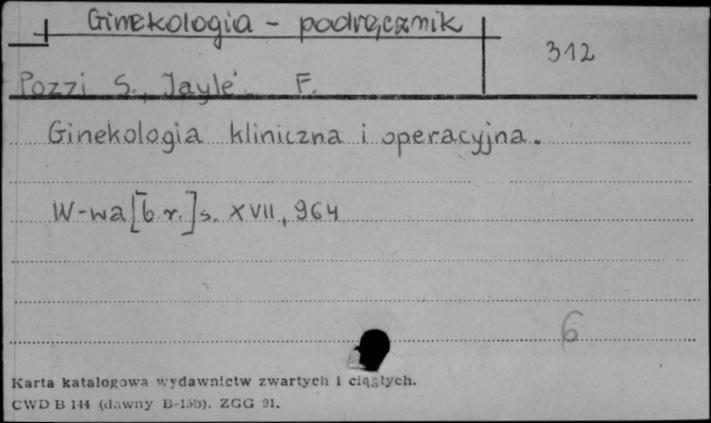 Ginekologia - podręcznik
312
Pozzi S., Jayle' F.
Ginekologia kliniczna i operacyjna.
W-wa [b r.] s. XVII, 964
6
Karta katalogowa wydawnictw zwartych i ciągłych.
CWD B 144 (dawny B-15b). ZGG 91.